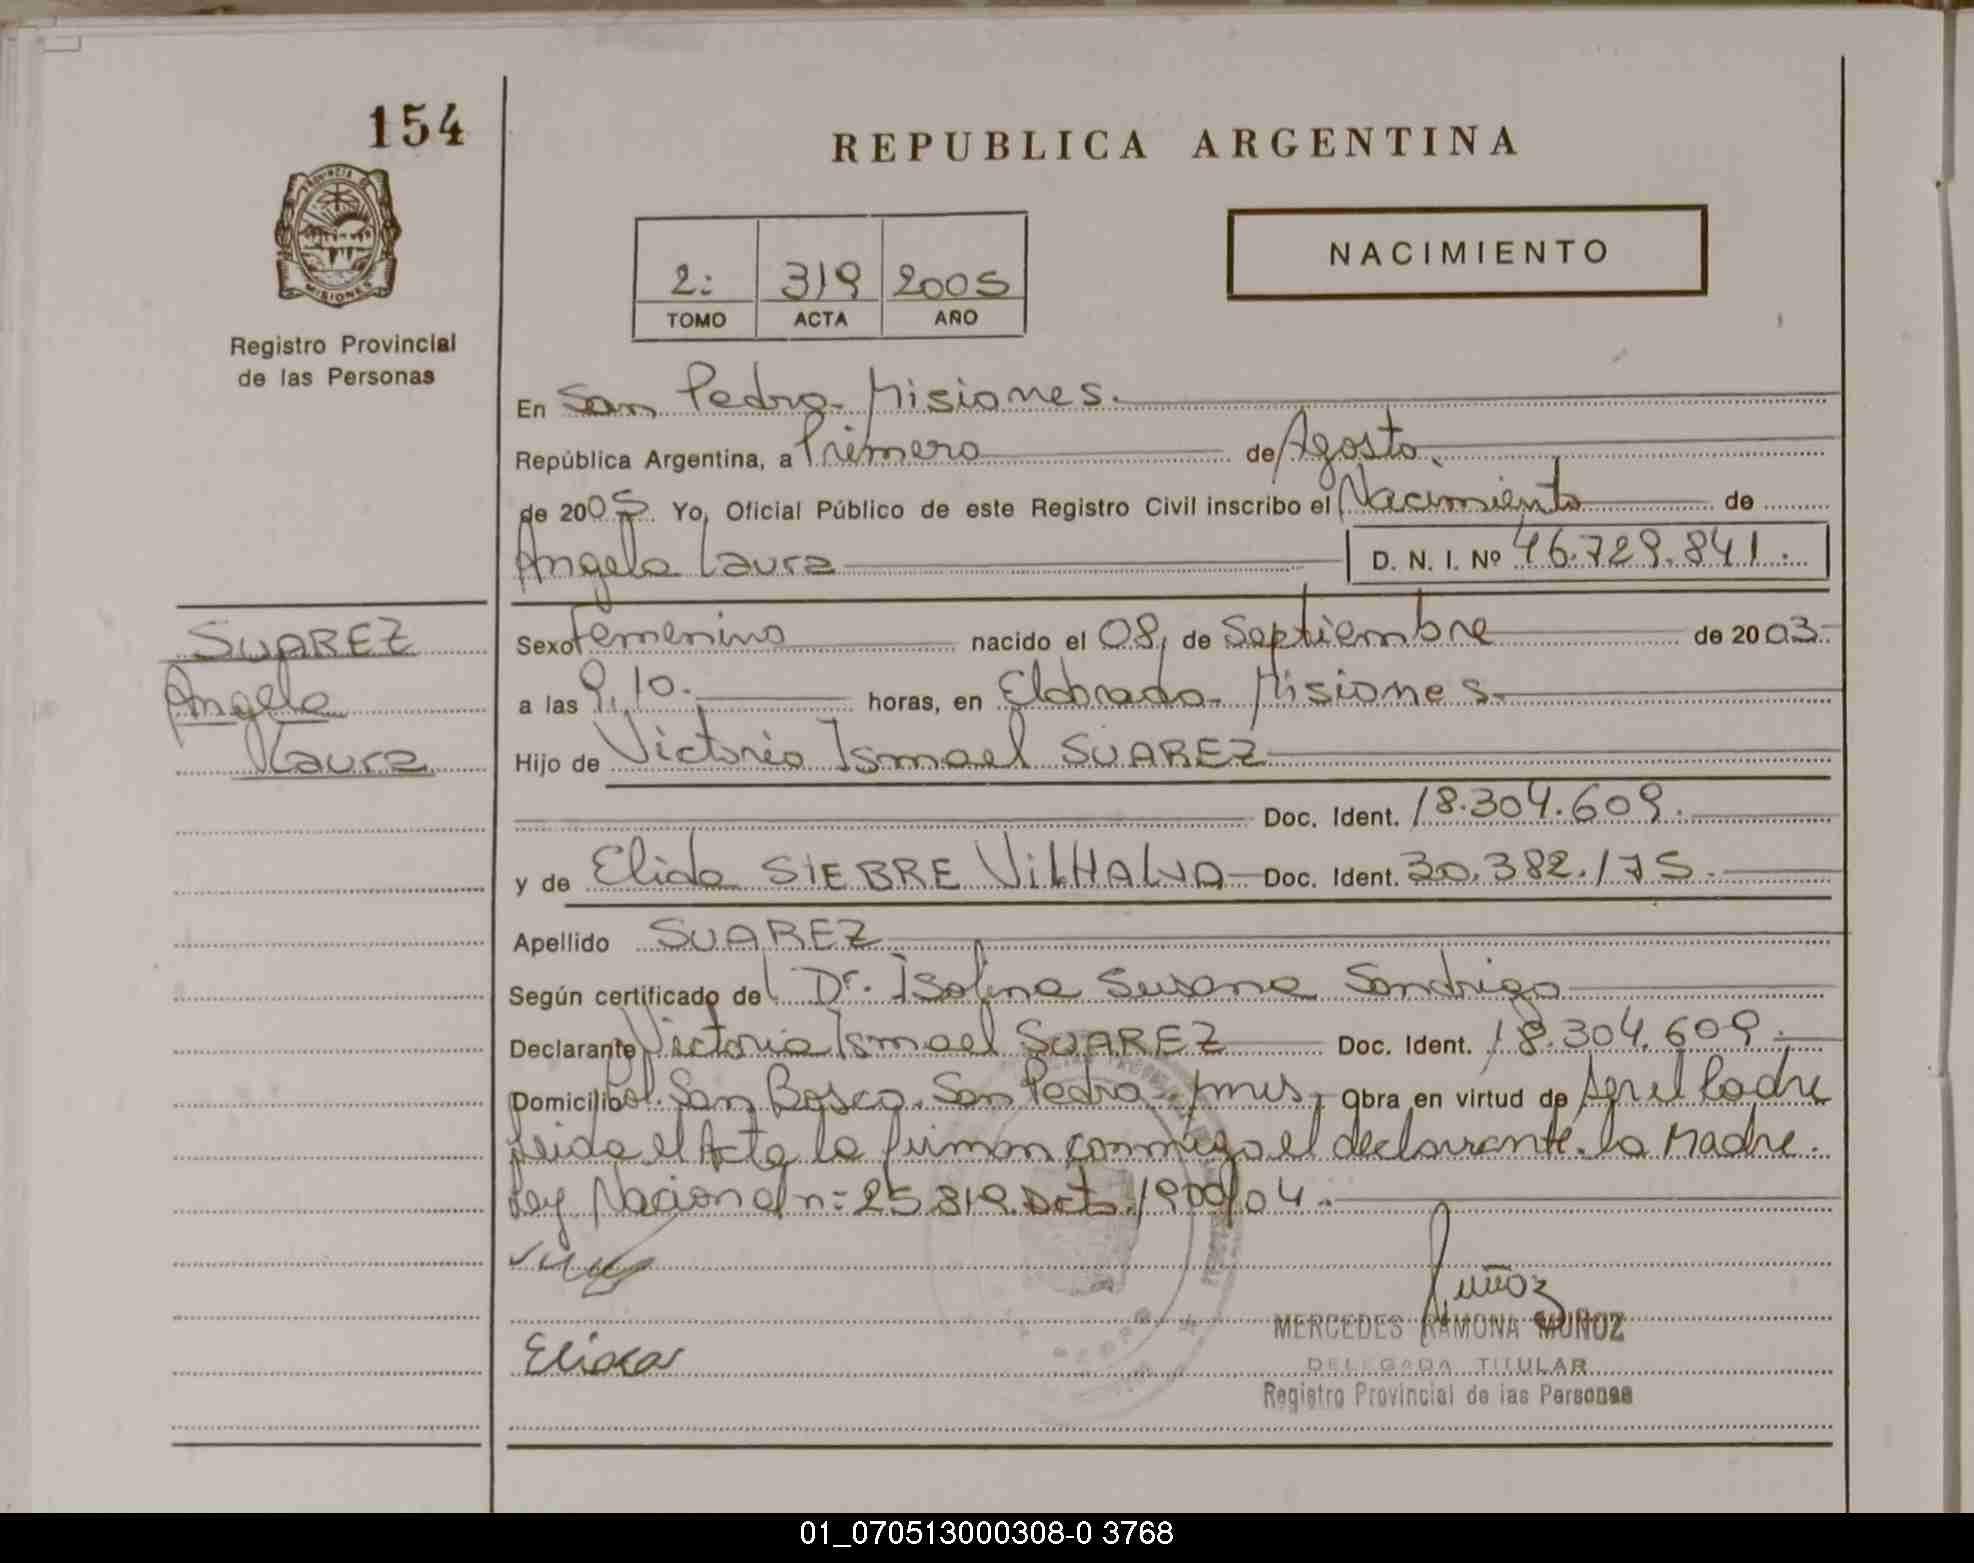 154
REPUBLICA ARGENTINA
NACIMIENTO
2: 319 2005
TOMO ACTA AÑO
PROVINCIA DE
MISIONES
Registro Provincial
de las Personas
En San Pedro. Misiones.
República Argentina, a Primero de Agosto
de 2005 Yo, Oficial Público de este Registro Civil inscribo el Nacimiento de
Angela Laura D. N. I. Nº 46.729.841.
SUAREZ
Angela
Laura
Sexo femenino nacido el 08, de Septiembre de 2003
a las 9,10. horas, en Eldorado. Misiones.
Hijo de Victorio Ismael SUAREZ
Doc. Ident. 18.304.609.
y de Elida SIEBRE VILHALVA Doc. Ident. 30.382.175.
Apellido SUAREZ
Según certificado del Dr. Isolina Susana Sandrigo
Declarante Victorio Ismael SUAREZ Doc. Ident. 18.304.609.
Domicilio San Bosco. San Pedro mnes. Obra en virtud de ser el Padre
leida el Acta la firman conmigo el declarante. la Madre.
Ley Nacional n: 25.819. Dct. 1900/04.
Muñoz
MERCEDES RAMONA MUÑOZ
DELEGADA TITULAR
Registro Provincial de las Personas
01_070513000308-0 3768